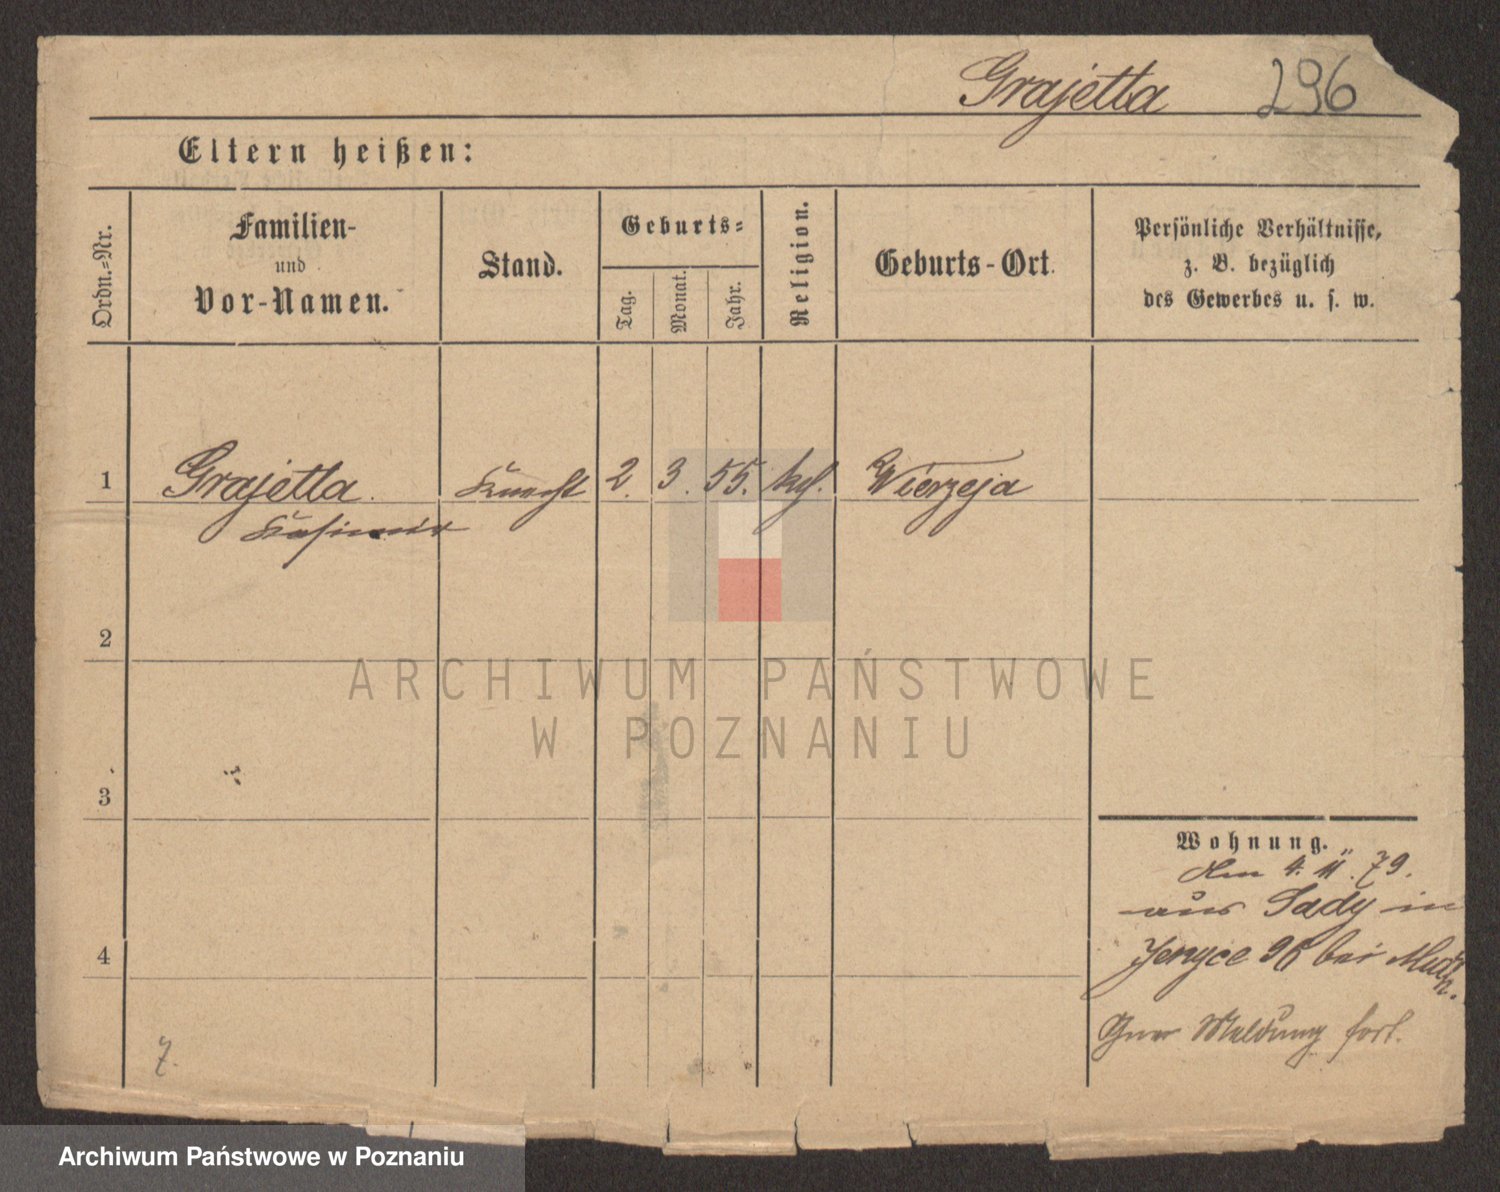 Grajetta 296
Eltern heißen:
Ordn.-Nr.
Familien-
und
Vor-Namen.
Stand.
Geburts-
Tag.
Monat.
Jahr.
Religion.
Geburts-Ort.
Persönliche Verhältnisse,
z. B. bezüglich
des Gewerbes u. s. w.
1 Grajetta. Knecht 2. 3. 55. kath. Wierzeja
Kasimir
2
ARCHIWUM PAŃSTWOWE
W POZNANIU
3
Wohnung.
Am 4. 11. 79.
aus Sady in
Jerzyce 96 bei
4
Meldung fort.
7.
Archiwum Państwowe w Poznaniu